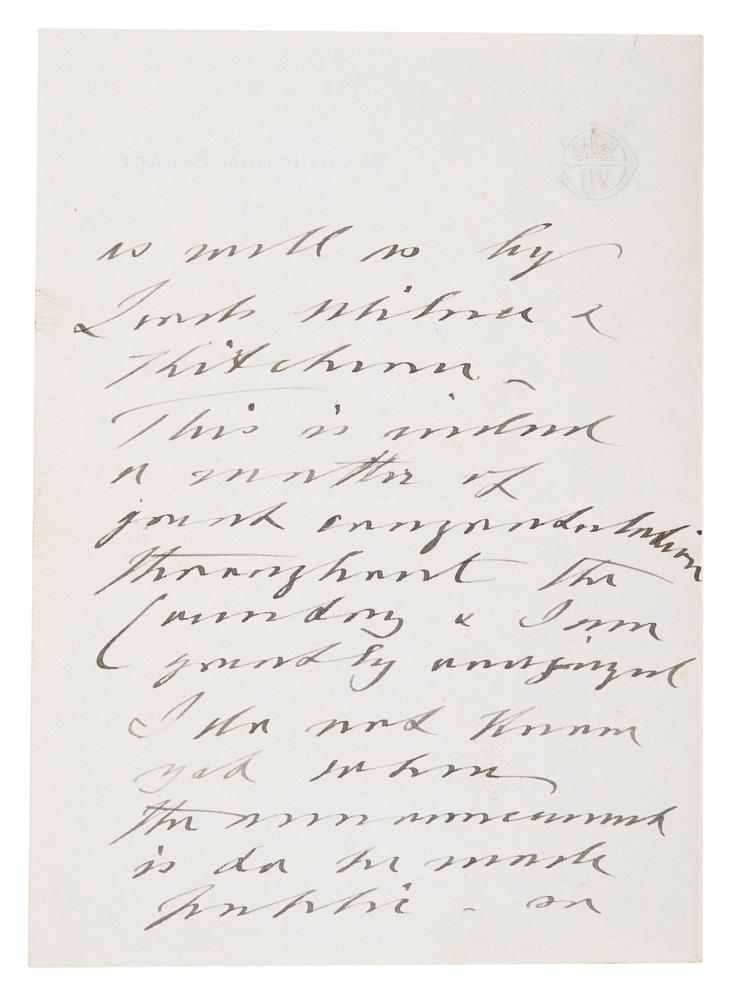 BUCKINGHAM PALACE
as well as by
Lords Milner &
Kitchener _
This is indeed
a matter of
great congratulation
throughout the
Country & I am
greatly
I do not know
yet when
the announcement
is to be made
public - so